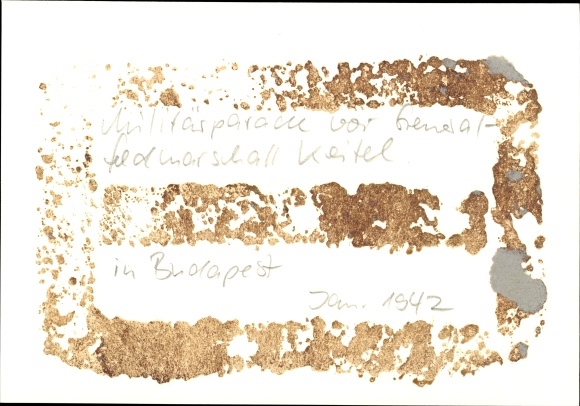 Militärparade vor General-
feldmarschall Keitel
in Budapest
Jan. 1942